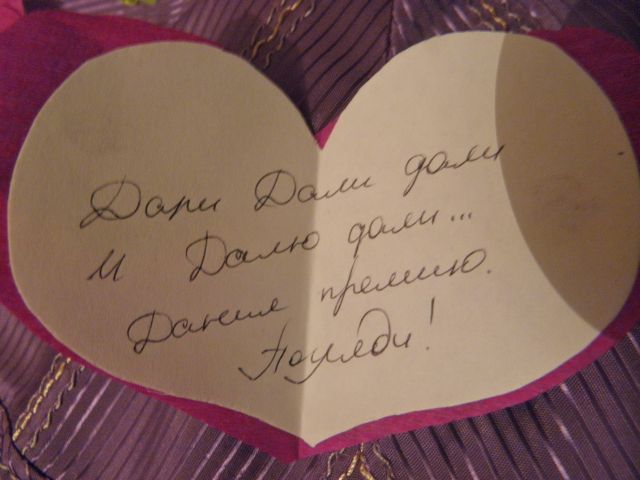 Дари Дали дали
И Далю дали...
Дании премию.
Ноуледи!